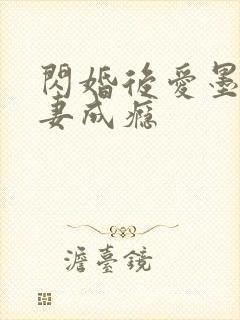 閃婚後愛墨
妻成癮
澹臺鏡